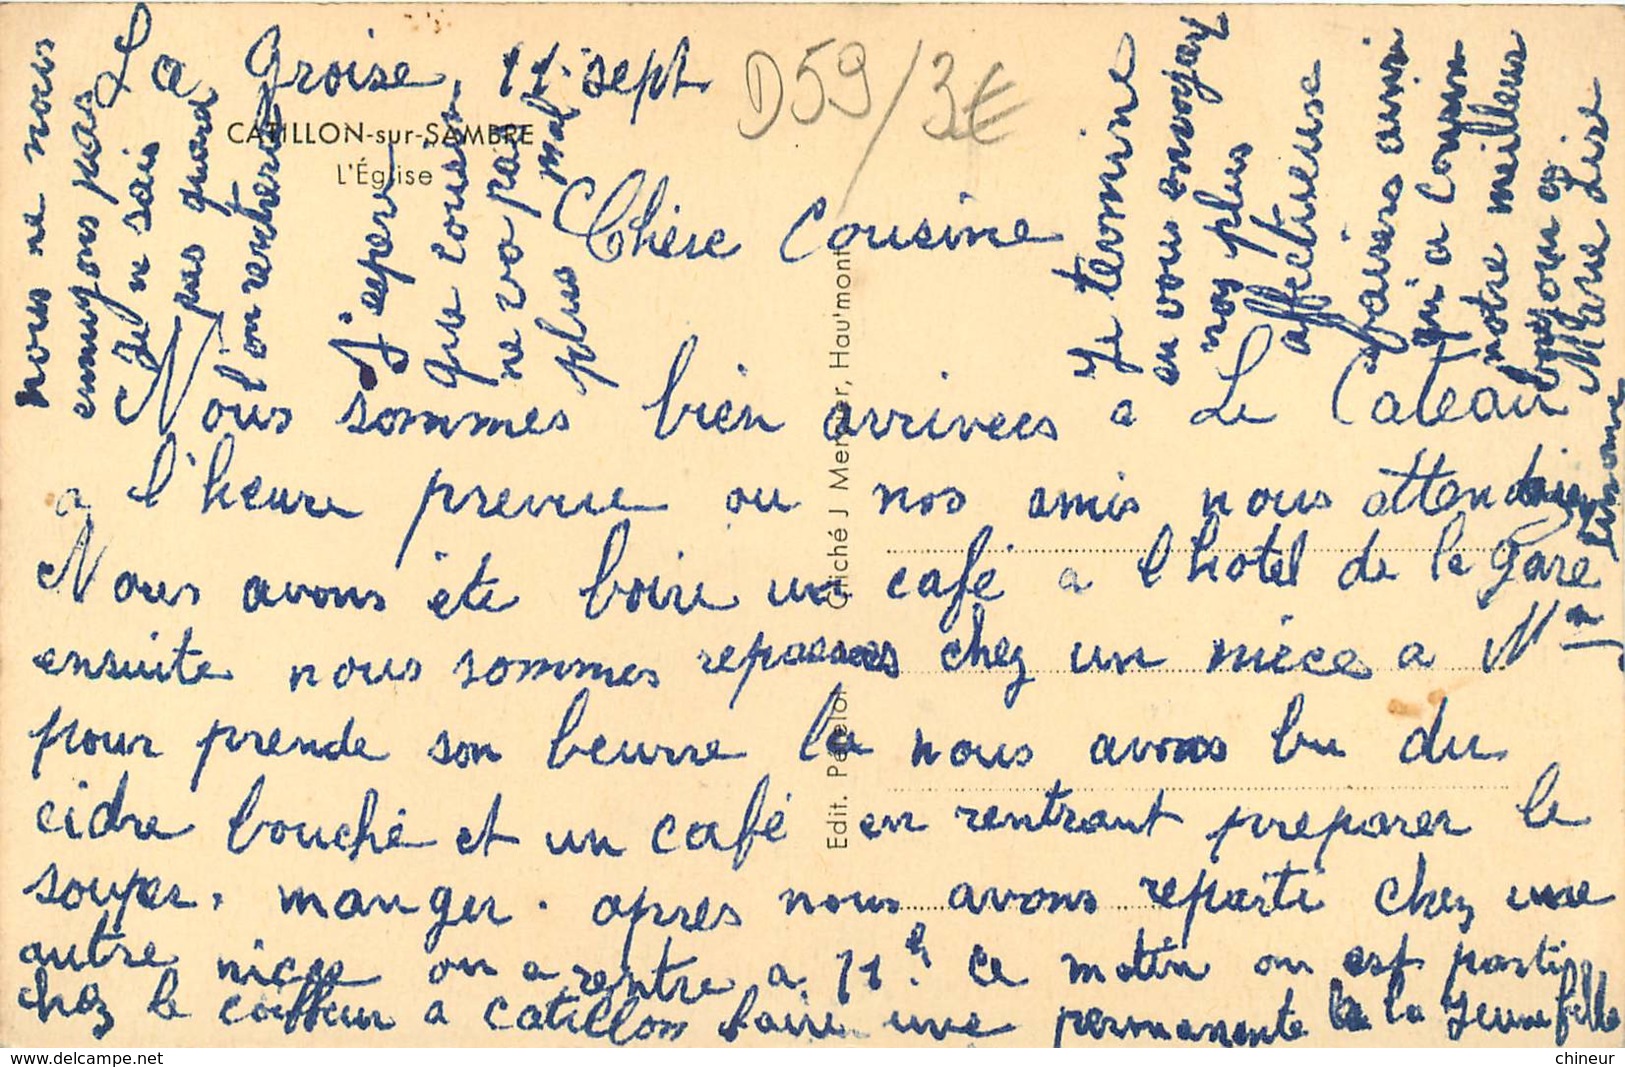 La Groise, 11 sept
D59/3€
CATILLON-sur-SAMBRE
L'Église
Chère Cousine
Nous sommes bien arrivees a Le Cateau
a l'heure prevue ou nos amis nous attendaient
Nous avons ête boire un café a l hotel de la gare
ensuite nous sommes repassees chez un niece a Mm
pour prende son beurre la nous avons bu du
cidre bouché et un café en rentrant preparer le
souper. manger. apres nous avons reparti chez une
autre niece on a rentre a 11h ce matin on est parti
chez le coiffeur a Catillon faire une permanente a la jeune fille
nous ne nous
ennuyons pas
je n sais
pas quand
l'on rentrera
J'esperes
que cousin
ne va pas
plus mal
Je termine
en vous envoyant
nos plus
affectueuse
baisers ainsi
qu'a cousin
notre meilleur
Marie Lise
Simone
Edit. Cliché J Mercier, Hautmont
chineur
delcampe.net